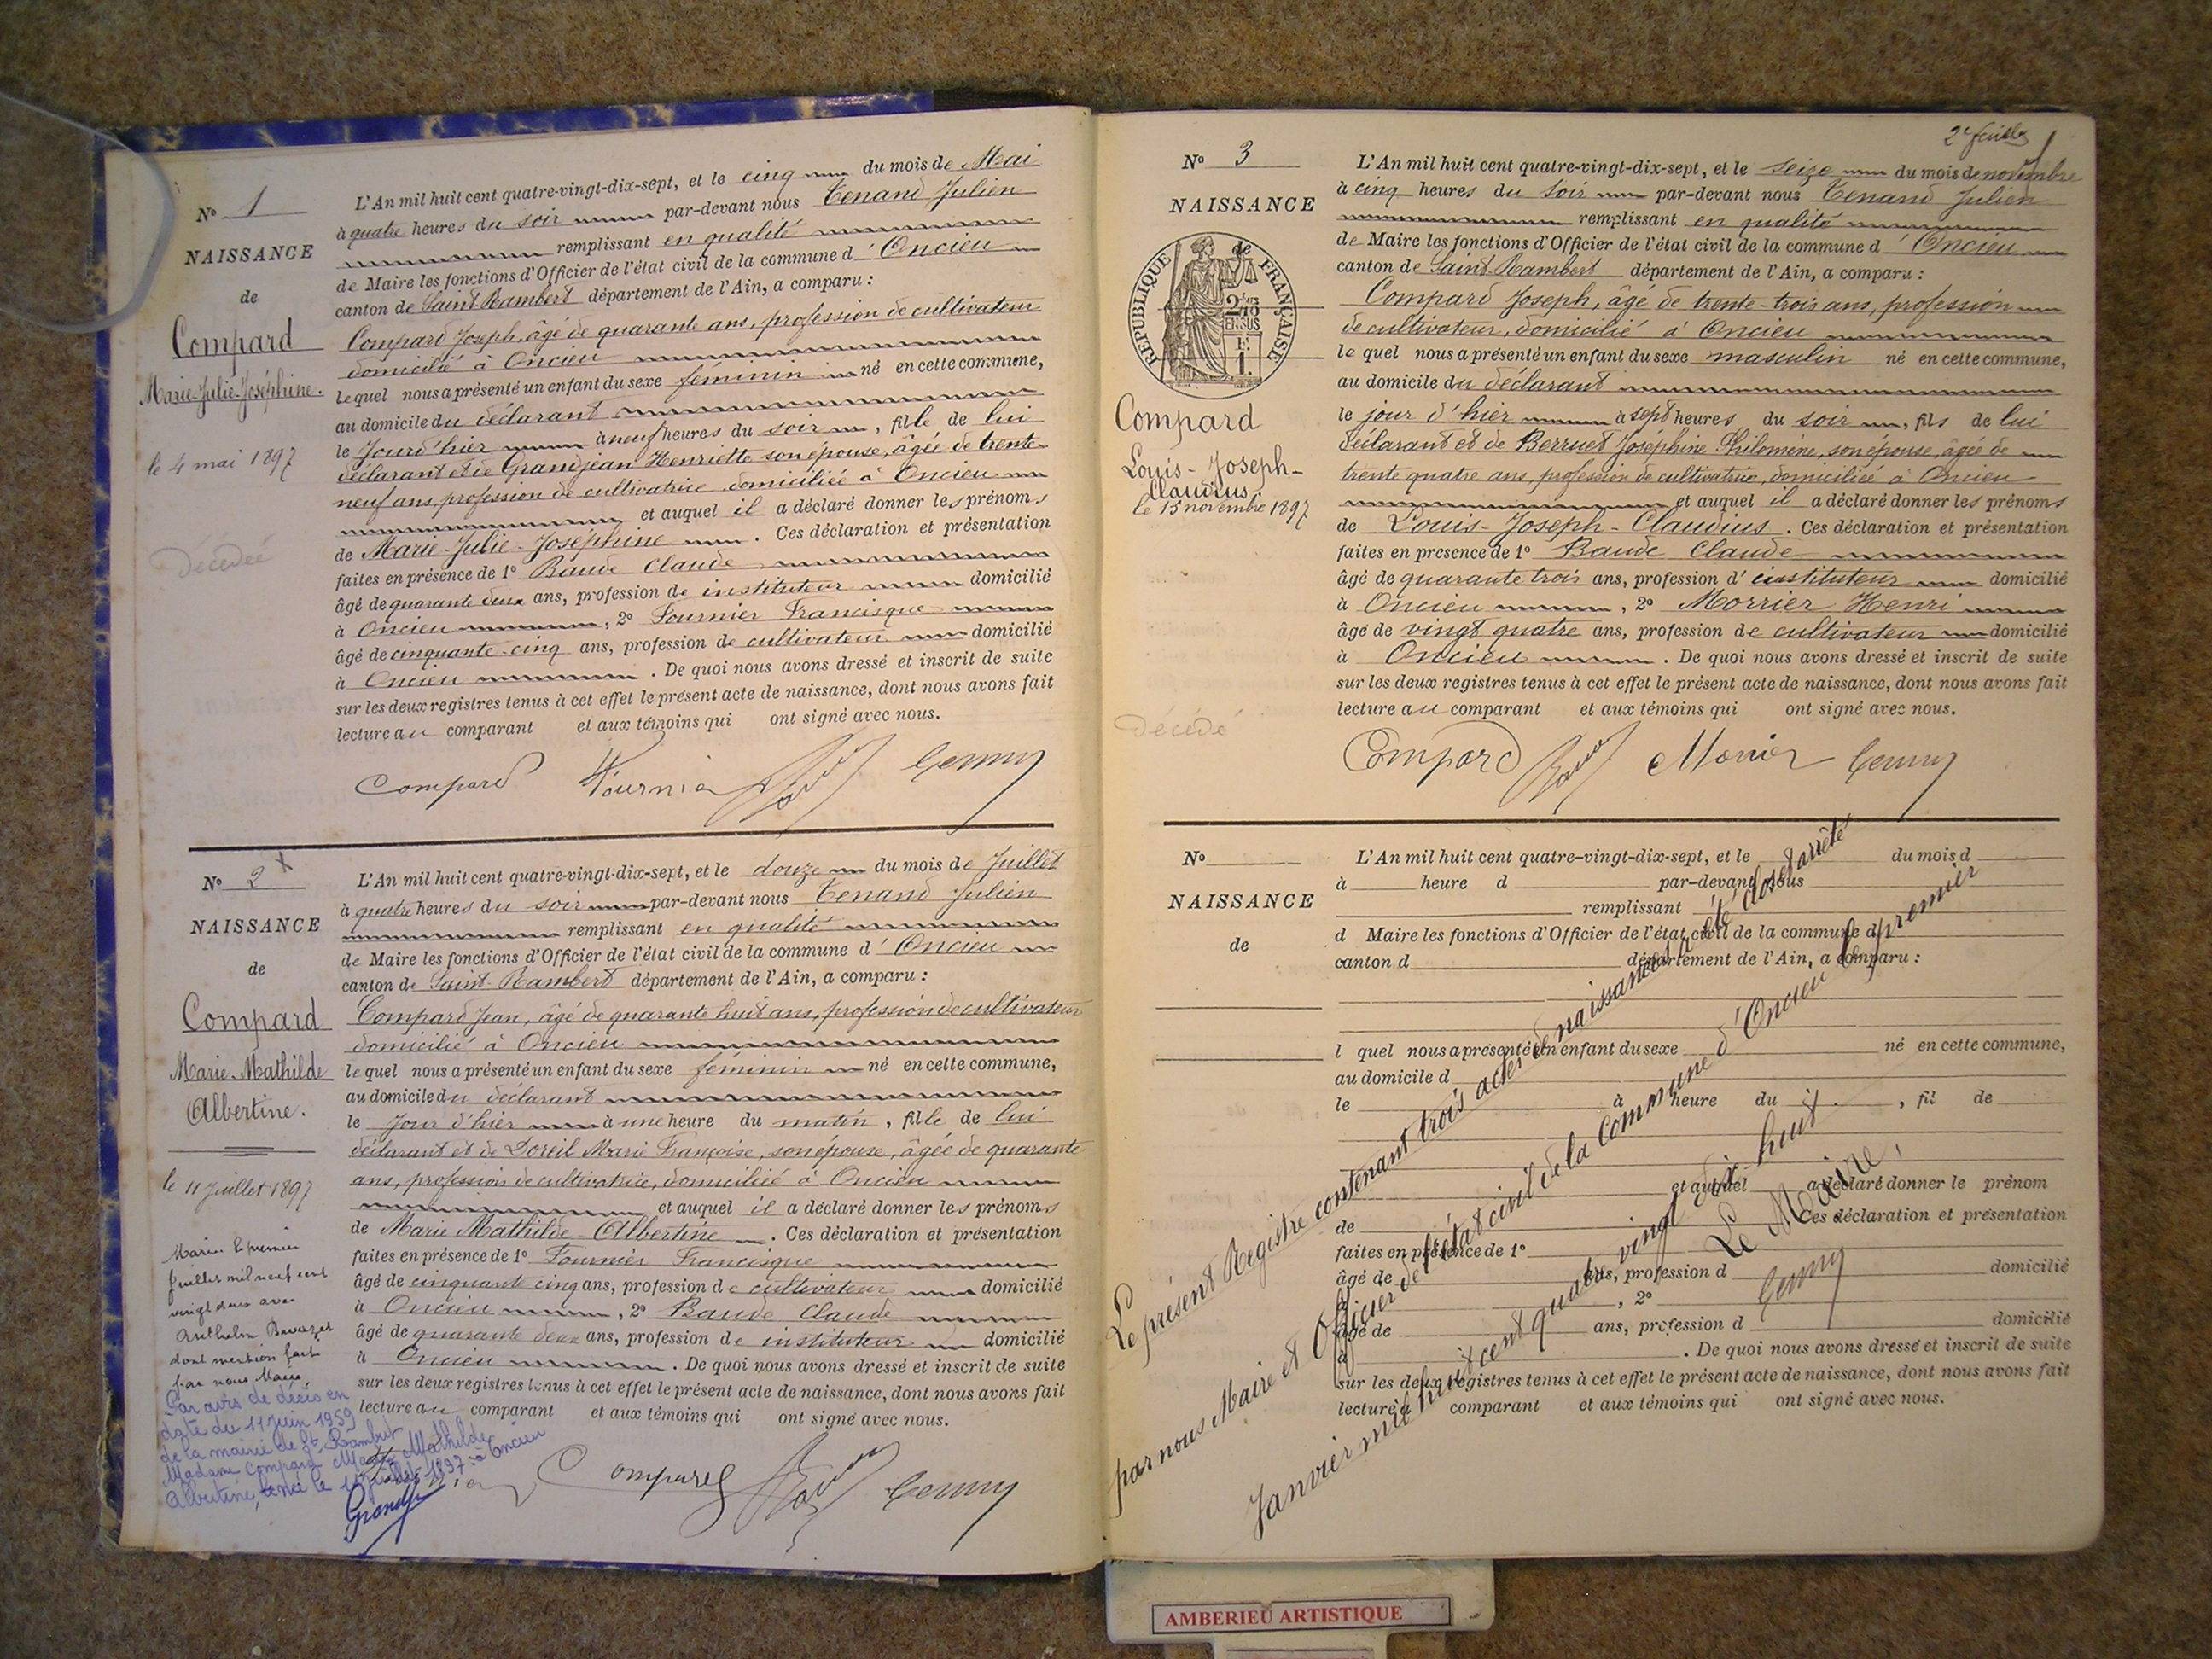 N° 1
NAISSANCE
de
Compard
Marie-Julie-Joséphine.
le 4 mai 1897
Décédée
L'An mil huit cent quatre-vingt-dix-sept, et le cinq du mois de Mai
à quatre heures du soir par-devant nous Tenand Julien
remplissant en qualité
de Maire les fonctions d'Officier de l'état civil de la commune d'Oncieu
canton de Saint-Rambert département de l'Ain, a comparu :
Compard Joseph, âgé de quarante ans, profession de cultivateur
domicilié à Oncieu
lequel nous a présenté un enfant du sexe féminin né en cette commune,
au domicile du déclarant
le Jour d'hier à neuf heures du soir, fille de lui
déclarant et de Grandjean Henriette son épouse, âgée de trente-
neuf ans, profession de cultivatrice domiciliée à Oncieu
et auquel il a déclaré donner les prénoms
de Marie-Julie-Joséphine. Ces déclaration et présentation
faites en présence de 1° Baude Claude
âgé de quarante deux ans, profession de instituteur domicilié
à Oncieu, 2° Fournier Francisque
âgé de cinquante-cinq ans, profession de cultivateur domicilié
à Oncieu. De quoi nous avons dressé et inscrit de suite
sur les deux registres tenus à cet effet le présent acte de naissance, dont nous avons fait
lecture au comparant et aux témoins qui ont signé avec nous.
Compard Fournier
N° 2
NAISSANCE
de
Compard
Marie-Mathilde
Albertine.
le 11 Juillet 1897
Mariée le premier
Juillet mil neuf cent
vingt deux avec
Anthelme
dont mention fait
par nous Maire
Par avis de décès en
date du 11 Juin 1959
de la mairie de St Rambert
Madame Compard Marie Mathilde
Albertine, née le 11 juillet 1897 à Oncieu
L'An mil huit cent quatre-vingt-dix-sept, et le douze du mois de Juillet
à quatre heures du soir par-devant nous Tenand Julien
remplissant en qualité
de Maire les fonctions d'Officier de l'état civil de la commune d'Oncieu
canton de Saint-Rambert département de l'Ain, a comparu :
Compard Jean, âgé de quarante huit ans, profession de cultivateur
domicilié à Oncieu
lequel nous a présenté un enfant du sexe féminin né en cette commune,
au domicile du déclarant
le Jour d'hier à une heure du matin, fille de lui
déclarant et de Doreil Marie Françoise, son épouse, âgée de quarante
ans, profession de cultivatrice, domiciliée à Oncieu
et auquel il a déclaré donner les prénoms
de Marie Mathilde Albertine. Ces déclaration et présentation
faites en présence de 1° Fournier Francisque
âgé de cinquante cinq ans, profession de cultivateur domicilié
à Oncieu, 2° Baude Claude
âgé de quarante deux ans, profession de instituteur domicilié
à Oncieu. De quoi nous avons dressé et inscrit de suite
sur les deux registres tenus à cet effet le présent acte de naissance, dont nous avons fait
lecture au comparant et aux témoins qui ont signé avec nous.
Compard
2e feuille
N° 3
NAISSANCE
RÉPUBLIQUE FRANÇAISE
Compard
Louis-Joseph-
Claudius
le 15 novembre 1897
Décédé
L'An mil huit cent quatre-vingt-dix-sept, et le seize du mois de novembre
à cinq heures du soir par-devant nous Tenand Julien
remplissant en qualité
de Maire les fonctions d'Officier de l'état civil de la commune d'Oncieu
canton de Saint-Rambert département de l'Ain, a comparu :
Compard Joseph, âgé de trente-trois ans, profession
de cultivateur, domicilié à Oncieu
lequel nous a présenté un enfant du sexe masculin né en cette commune,
au domicile du déclarant
le jour d'hier à sept heures du soir, fils de lui
déclarant et de Berruet Joséphine Philomène, son épouse, âgée de
trente quatre ans, profession de cultivatrice, domiciliée à Oncieu
et auquel il a déclaré donner les prénoms
de Louis-Joseph-Claudius. Ces déclaration et présentation
faites en présence de 1° Baude Claude
âgé de quarante trois ans, profession d'instituteur domicilié
à Oncieu, 2° Morrier Henri
âgé de vingt quatre ans, profession de cultivateur domicilié
à Oncieu. De quoi nous avons dressé et inscrit de suite
sur les deux registres tenus à cet effet le présent acte de naissance, dont nous avons fait
lecture au comparant et aux témoins qui ont signé avec nous.
Compard
N°
NAISSANCE
de
L'An mil huit cent quatre-vingt-dix-sept, et le du mois d
à heure d par-devant nous
remplissant
d Maire les fonctions d'Officier de l'état civil de la commune d
canton d département de l'Ain, a comparu :
l quel nous a présenté un enfant du sexe né en cette commune,
au domicile d
le à heure du , fil de
et auquel a déclaré donner le prénom
de Ces déclaration et présentation
faites en présence de 1°
âgé de ans, profession d domicilié
à , 2°
âgé de ans, profession d domicilié
à . De quoi nous avons dressé et inscrit de suite
sur les deux registres tenus à cet effet le présent acte de naissance, dont nous avons fait
lecture à comparant et aux témoins qui ont signé avec nous.
Le présent Registre contenant trois actes de naissance a été clos et arrêté
par nous Maire et Officier de l'état civil de la Commune d'Oncieu le premier
Janvier mil huit cent quatre vingt dix-huit.
Le Maire,
AMBERIEU ARTISTIQUE